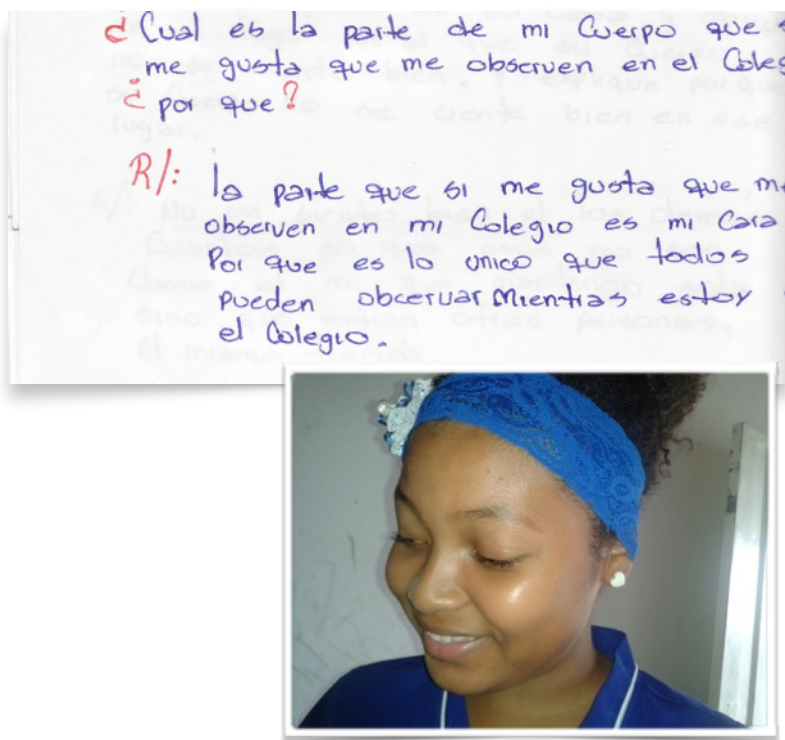 ¿Cual es la parte de mi Cuerpo que
me gusta que me observen en el
¿por que?
R/: la parte que si me gusta que
observen en mi Colegio es mi Cara
Por que es lo unico que todos
pueden obcervar Mientras estoy
el Colegio.